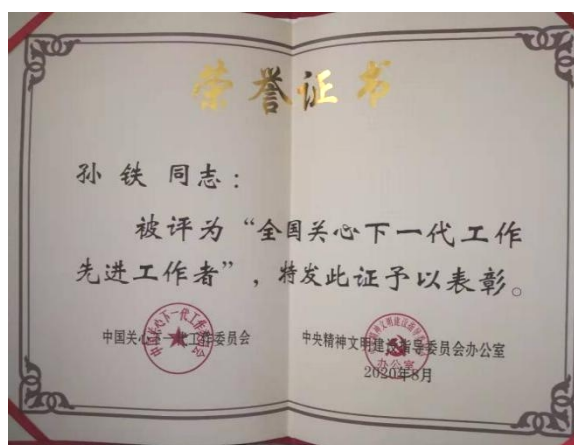 荣誉证书
孙铁 同志：
被评为“全国关心下一代工作
先进工作者”，特发此证予以表彰。
中国关心下一代工作委员会 中央精神文明建设指导委员会办公室
2020年8月
中国关心下一代工作委员会
办公室